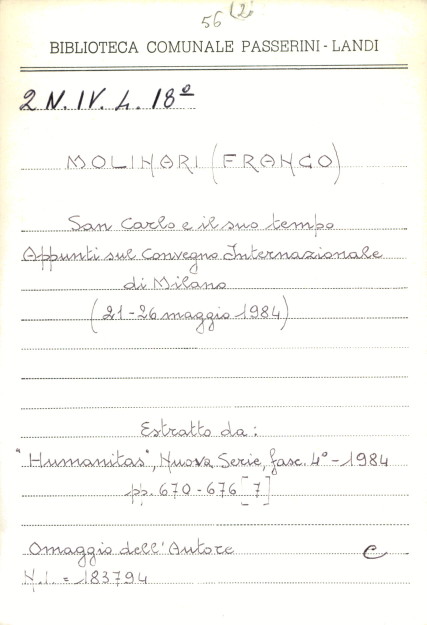 56 (2)
BIBLIOTECA COMUNALE PASSERINI - LANDI
2 N. IV. L. 18º
MOLINARI (FRANCO)
San Carlo e il suo tempo
Appunti sul Convegno Internazionale
di Milano
(21-26 maggio 1984)
Estratto da:
"Humanitas", Nuova Serie, fasc. 4º - 1984
pp. 670 - 676 [7]
Omaggio dell'Autore C
N.I. = 183794